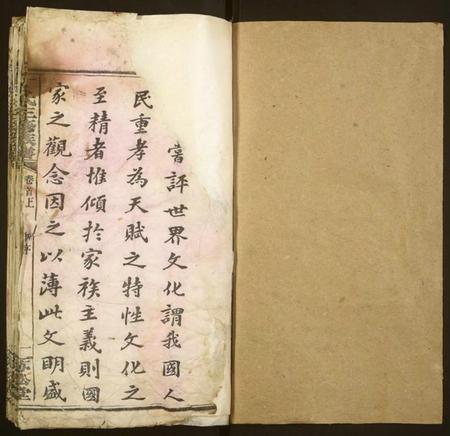 嘗評世界文化謂我國人
民重孝為天賦之特性文化之
至精者惟傾於家族主義則國
家之觀念因之以薄此文明盛
卷首上